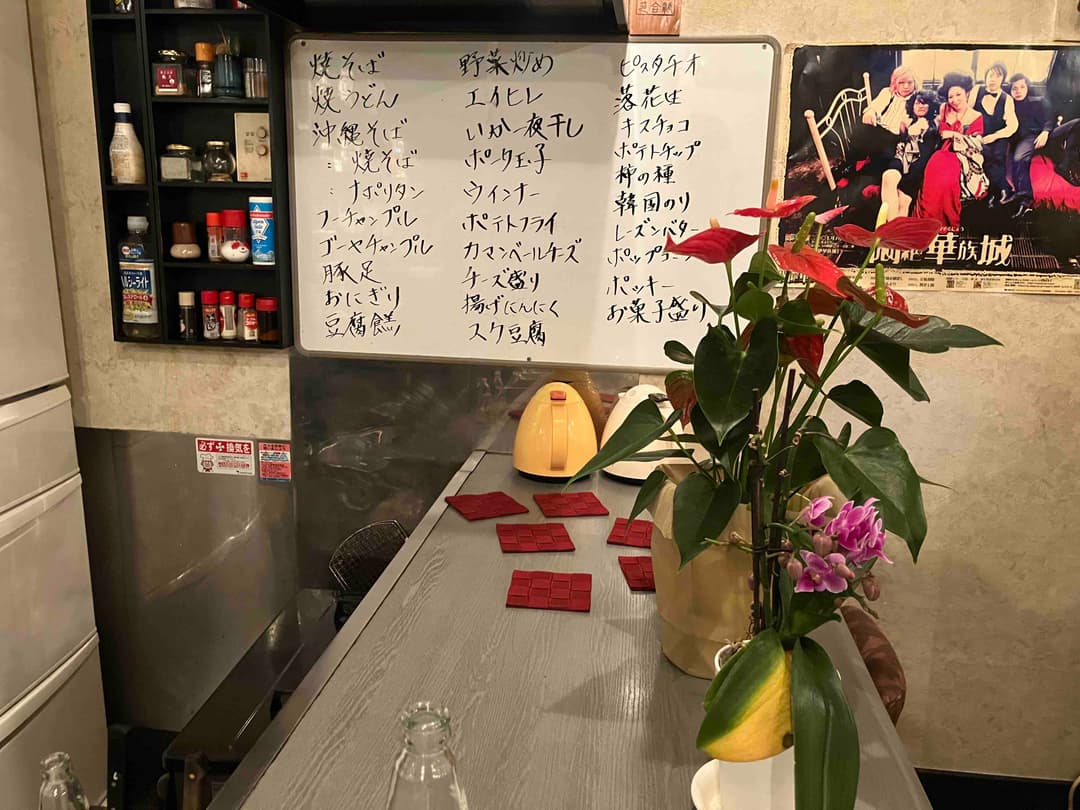 焼そば
焼うどん
沖縄そば
: 焼そば
: ナポリタン
フーチャンプル
ゴーヤチャンプル
豚足
おにぎり
豆腐餻
野菜炒め
エイヒレ
いか一夜干し
ポーク玉子
ウインナー
ポテトフライ
カマンベールチーズ
チーズ盛り
揚げにんにく
スク豆腐
ピスタチオ
落花生
キスチョコ
ポテトチップ
柿の種
韓国のり
レーズンバター
ポップコーン
ポッキー
お菓子盛り
華族城
ヘルシーライト
必ず換気を